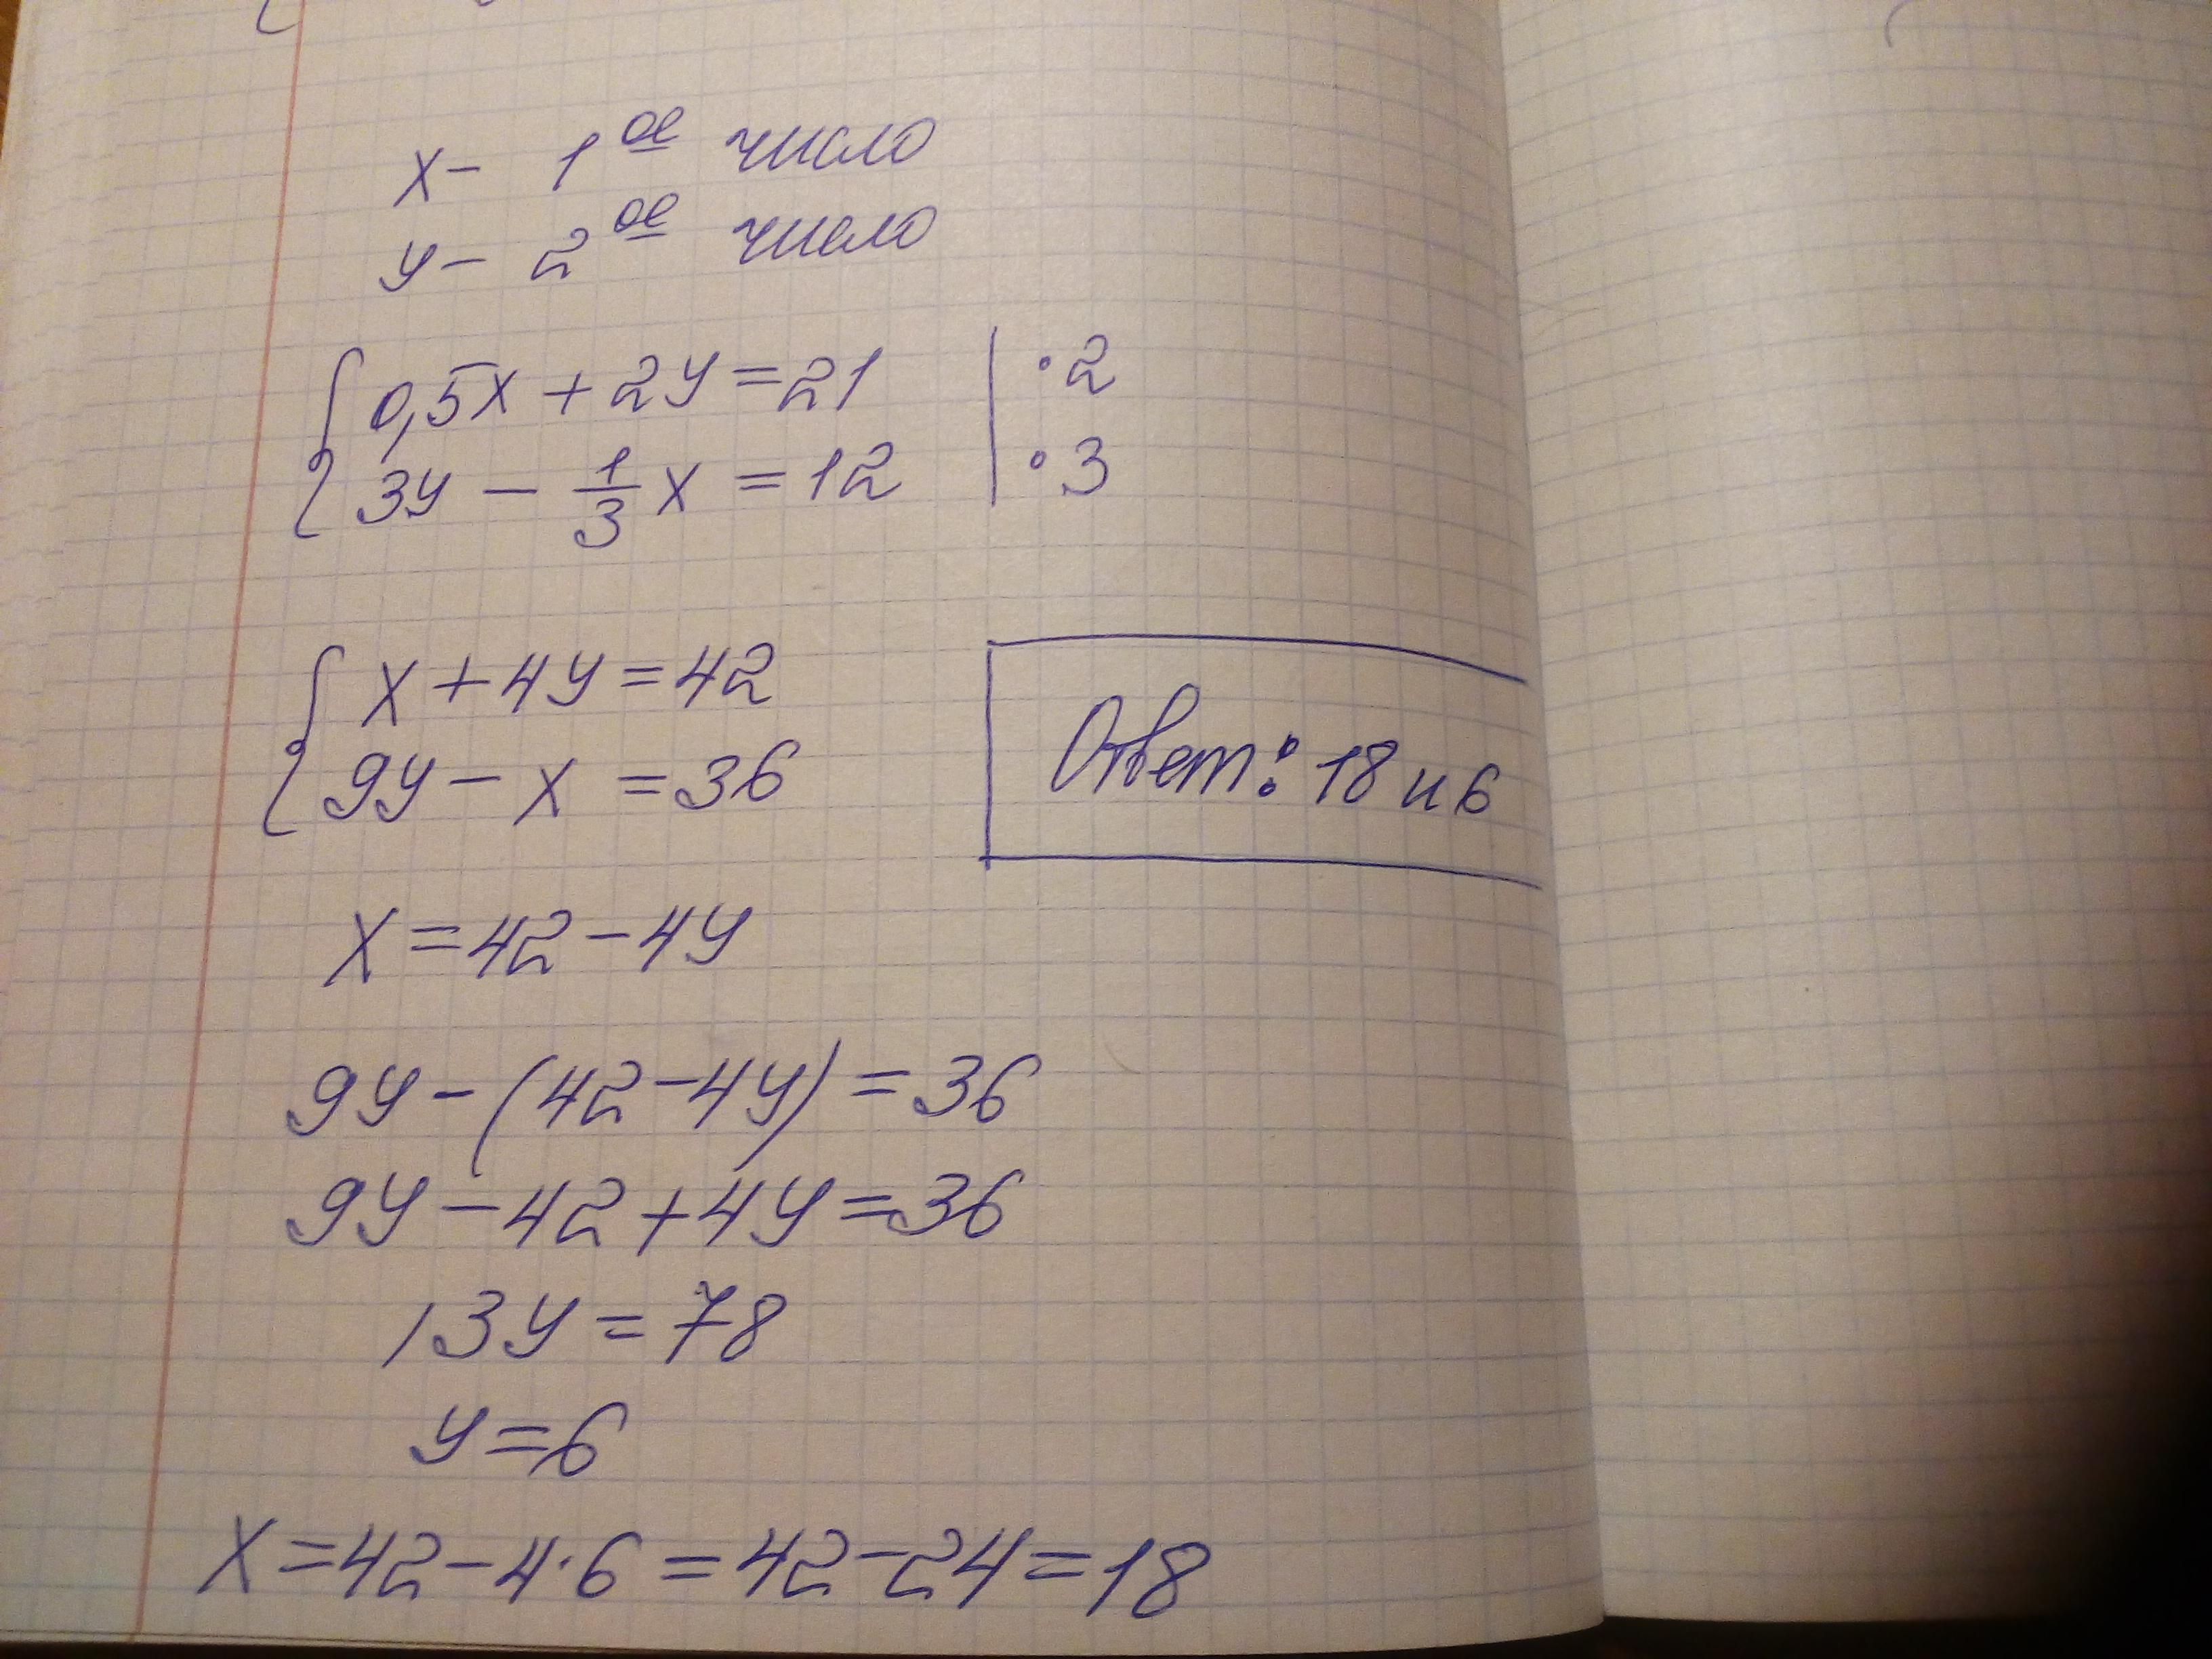 x - 1ое число
y - 2ое число
{ 0,5x + 2y = 21 | · 2
{ 3y - 1/3 x = 12 | · 3
{ x + 4y = 42
{ 9y - x = 36
Ответ: 18 и 6
x = 42 - 4y
9y - (42 - 4y) = 36
9y - 42 + 4y = 36
13y = 78
y = 6
x = 42 - 4·6 = 42 - 24 = 18